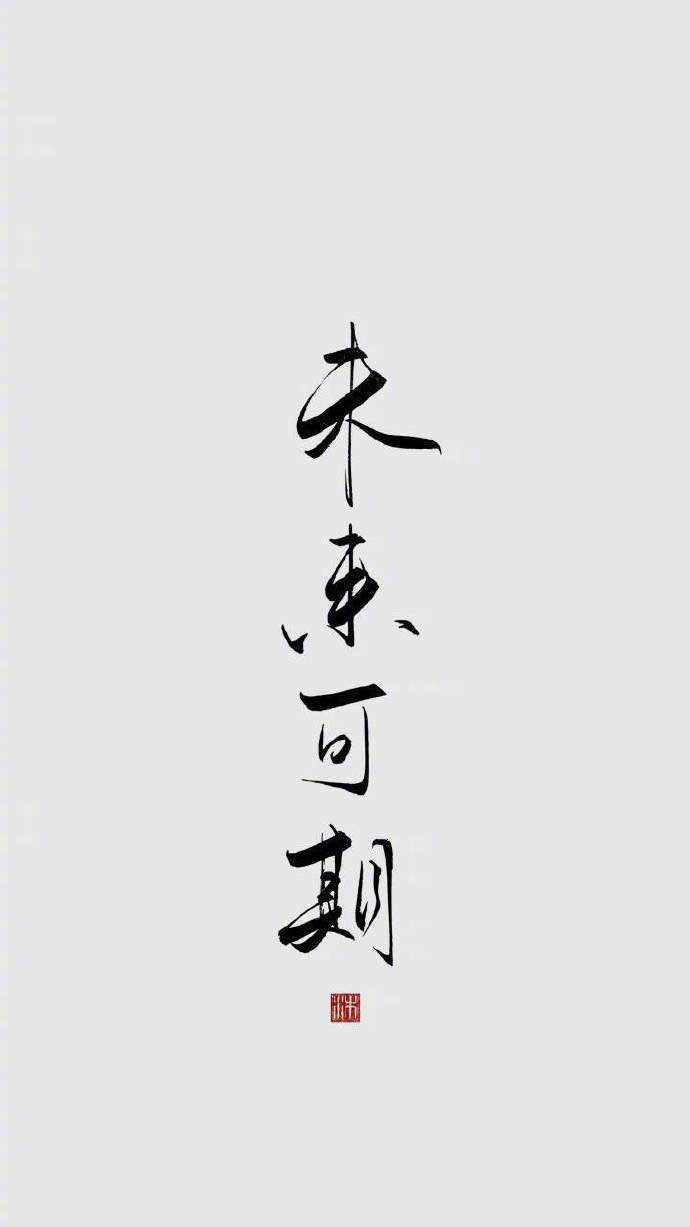 未来可期
沐